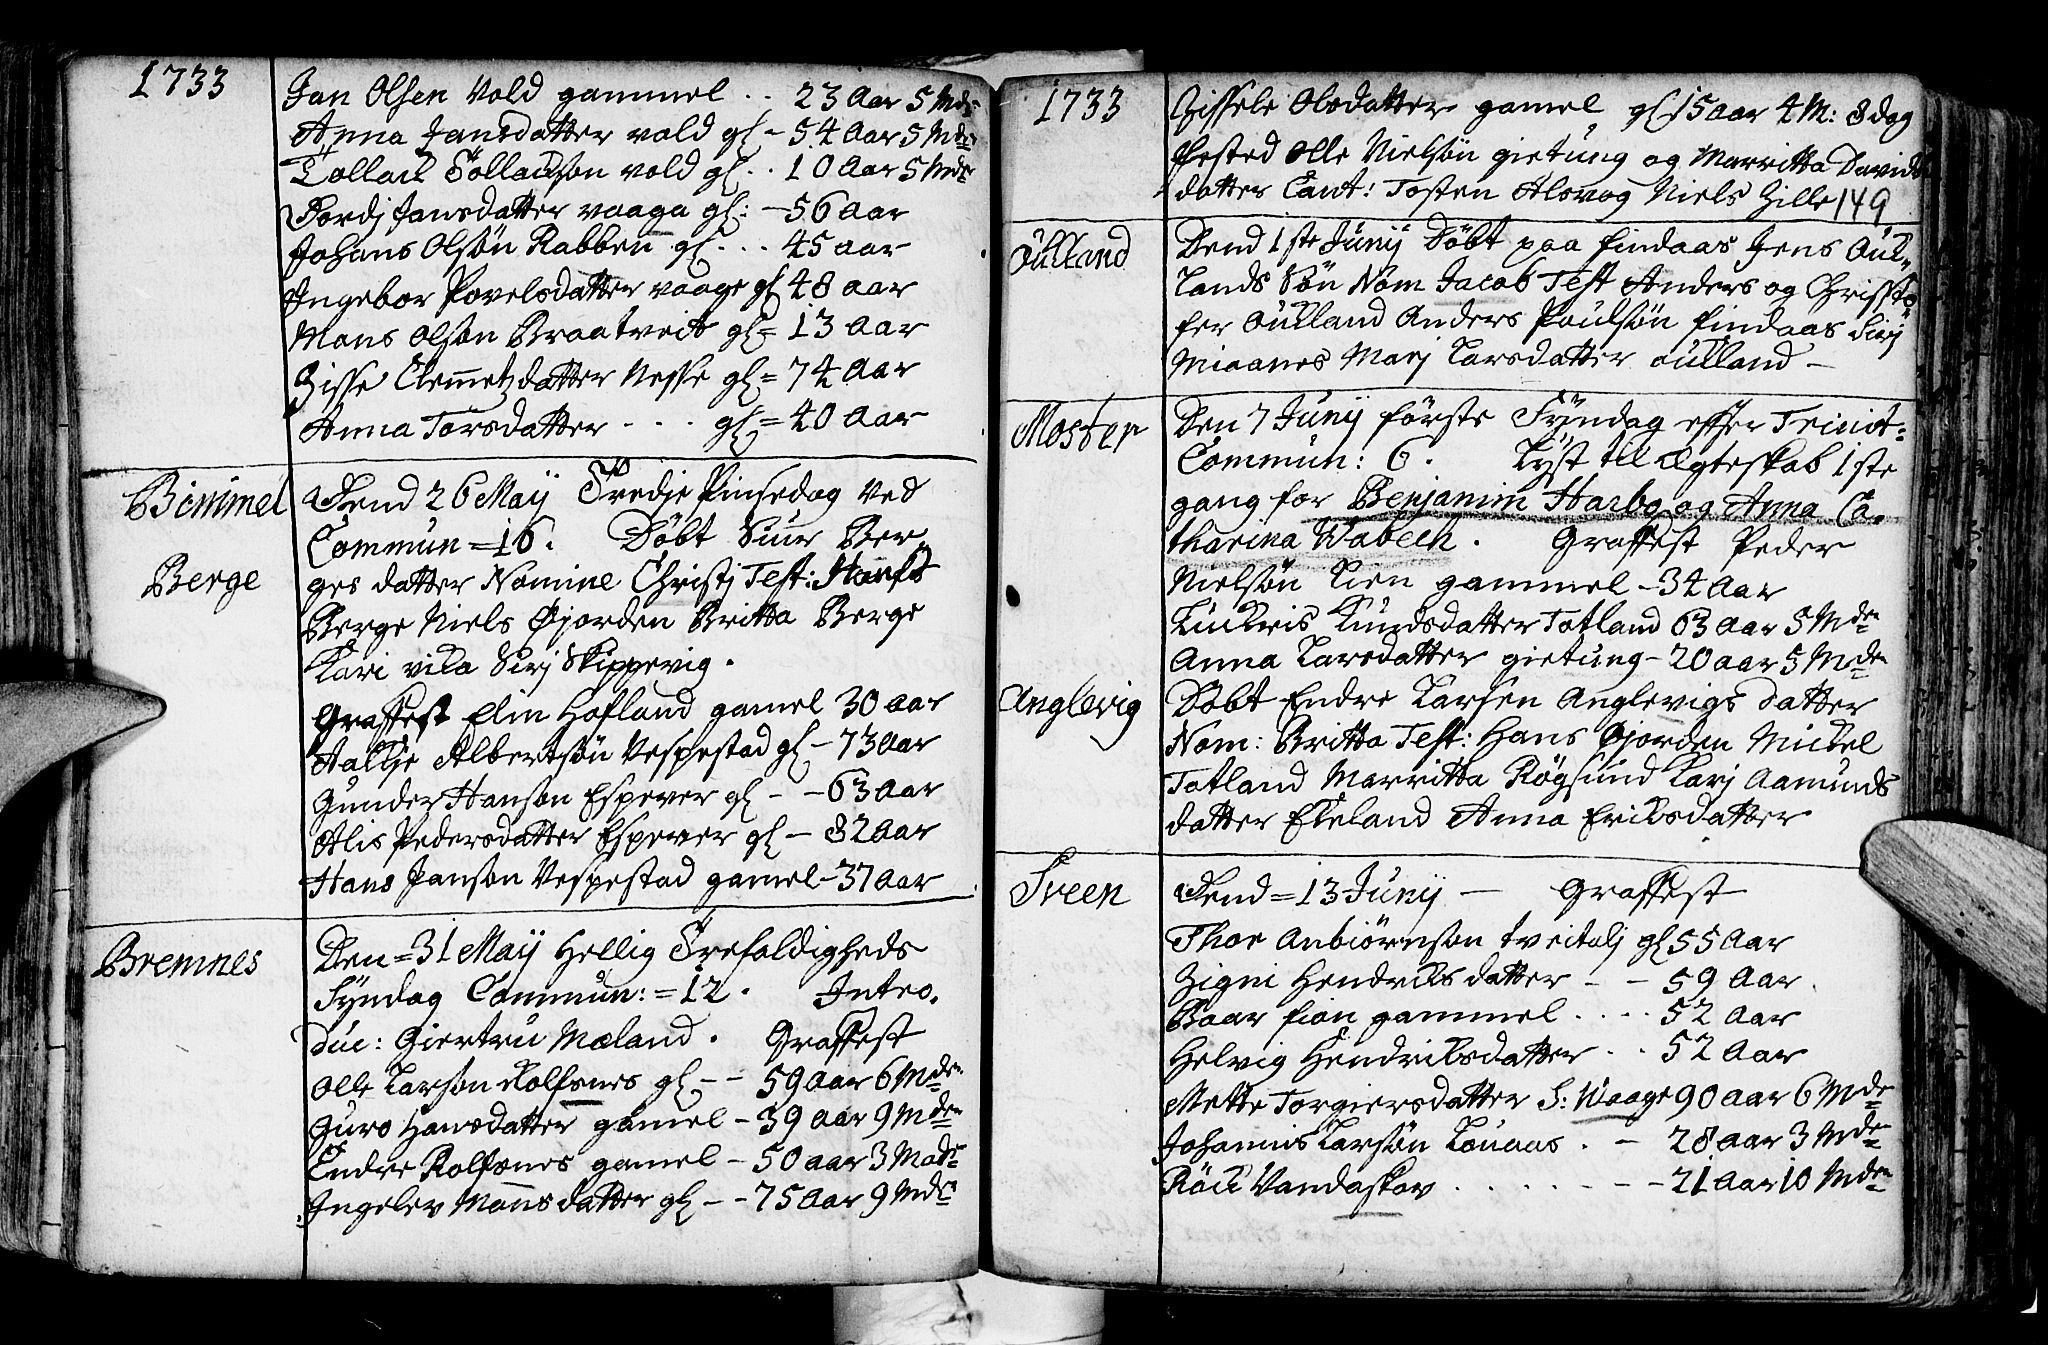 1733
Jan Olsen Vold gammel .. 23 Aar 5 Mdr
Anna Jansdatter vold gl - 54 Aar 5 Mdr
Tollack Tollackson vold gl .. 10 Aar 5 Mdr
Tordj Jansdatter vaaga gl: - 56 Aar
Johans Olsøn Rabben gl ... 45 aar
Ingebor Povelsdatter vaage gl 48 aar
Mons Olson Braatveit gl = 13 aar
Zisse Clemetzdatter Nesse gl = 74 Aar
Anna Torsdatter - . . gl = 40 Aar
Bømmel
Dend 26 Maij Tredje Pinsedag ved
Commun = 16. Døbt Siur Ber
Berge
ges datter Nomine Christj Test:
Berge Niels Øjorden Britta Berge
Kari vika Sirj Skippevig.
Graffest Elin Hofland gamel 30 aar
Hallje Albertsøn Vespestad gl - 73 Aar
Gunder Hanson Espever gl - - 63 Aar
Alis Pedersdatter Espever gl - 82 Aar
Hans Janson Vespestad gamel - 37 Aar
Bremnes
Den = 31 Maij Hellig Trefoldigheds
Syndag Commun: = 12. Intro.
duc: Giertru Mæland. Graffest
Olle Larson Rolfsnes gl - - 59 Aar 6 Mdr
Guro Hansdatter gamel - 39 aar 9 Mdr
Endre Rolfsnes gamel - 50 aar 3 Mdr
Ingelev Monsdatter gl - - 75 Aar 9 Mdr
1733
Zissele Olsdatter gamel gl 15 aar 4 M: 8 dag
Fested Olle Nielsøn gietung og Marritta Davids
datter Caut: Tosten Alsvog Niels Gille 149
Øulland
Dend 1ste Junij Døbt paa findaas Jens Øul
lands Søn Nom Jacob Test Anders og Christo
fer Øulland Anders Poulsøn findaas Sirj
Miaanes Marj Larsdatter øulland -
Moster
Den 7 Junij første Syndag effter Trinit:
Commun: 6. Lyst til Ægteskab 1ste
gang for Benjamin Harbo og Anna Ca.
tharina Wabech. Graffest Peder
Nielsøn Lien gammel - 34 Aar
Lucris Knudsdatter Totland 63 aar 5 Mdr
Anna Larsdatter gietung - 20 aar 5 Mdr
Anglevig
Døbt Endre Larsen Anglevigs datter
Nom: Britta Test: Hans Øjorden Mickel
Totland Marritta Røgsund Karj Aamunds
datter Ekeland Anna Eriksdatter
Sveen
Dend = 13 Junij — Graffest
Thor Anbiørnson tveitalj gl 55 Aar
Zigni Hendriksdatter - - 59 Aar.
Baar fion gammel .... 52 Aar
Helvig Hendriksdatter .. 52 Aar
Mette Torgiersdatter S: Waage 90 aar 6 Mdr
Johannis Larsøn Louaas . - 28 aar 3 Mdr
Vandaskov . . . . . - - 21 Aar 10 Mdr